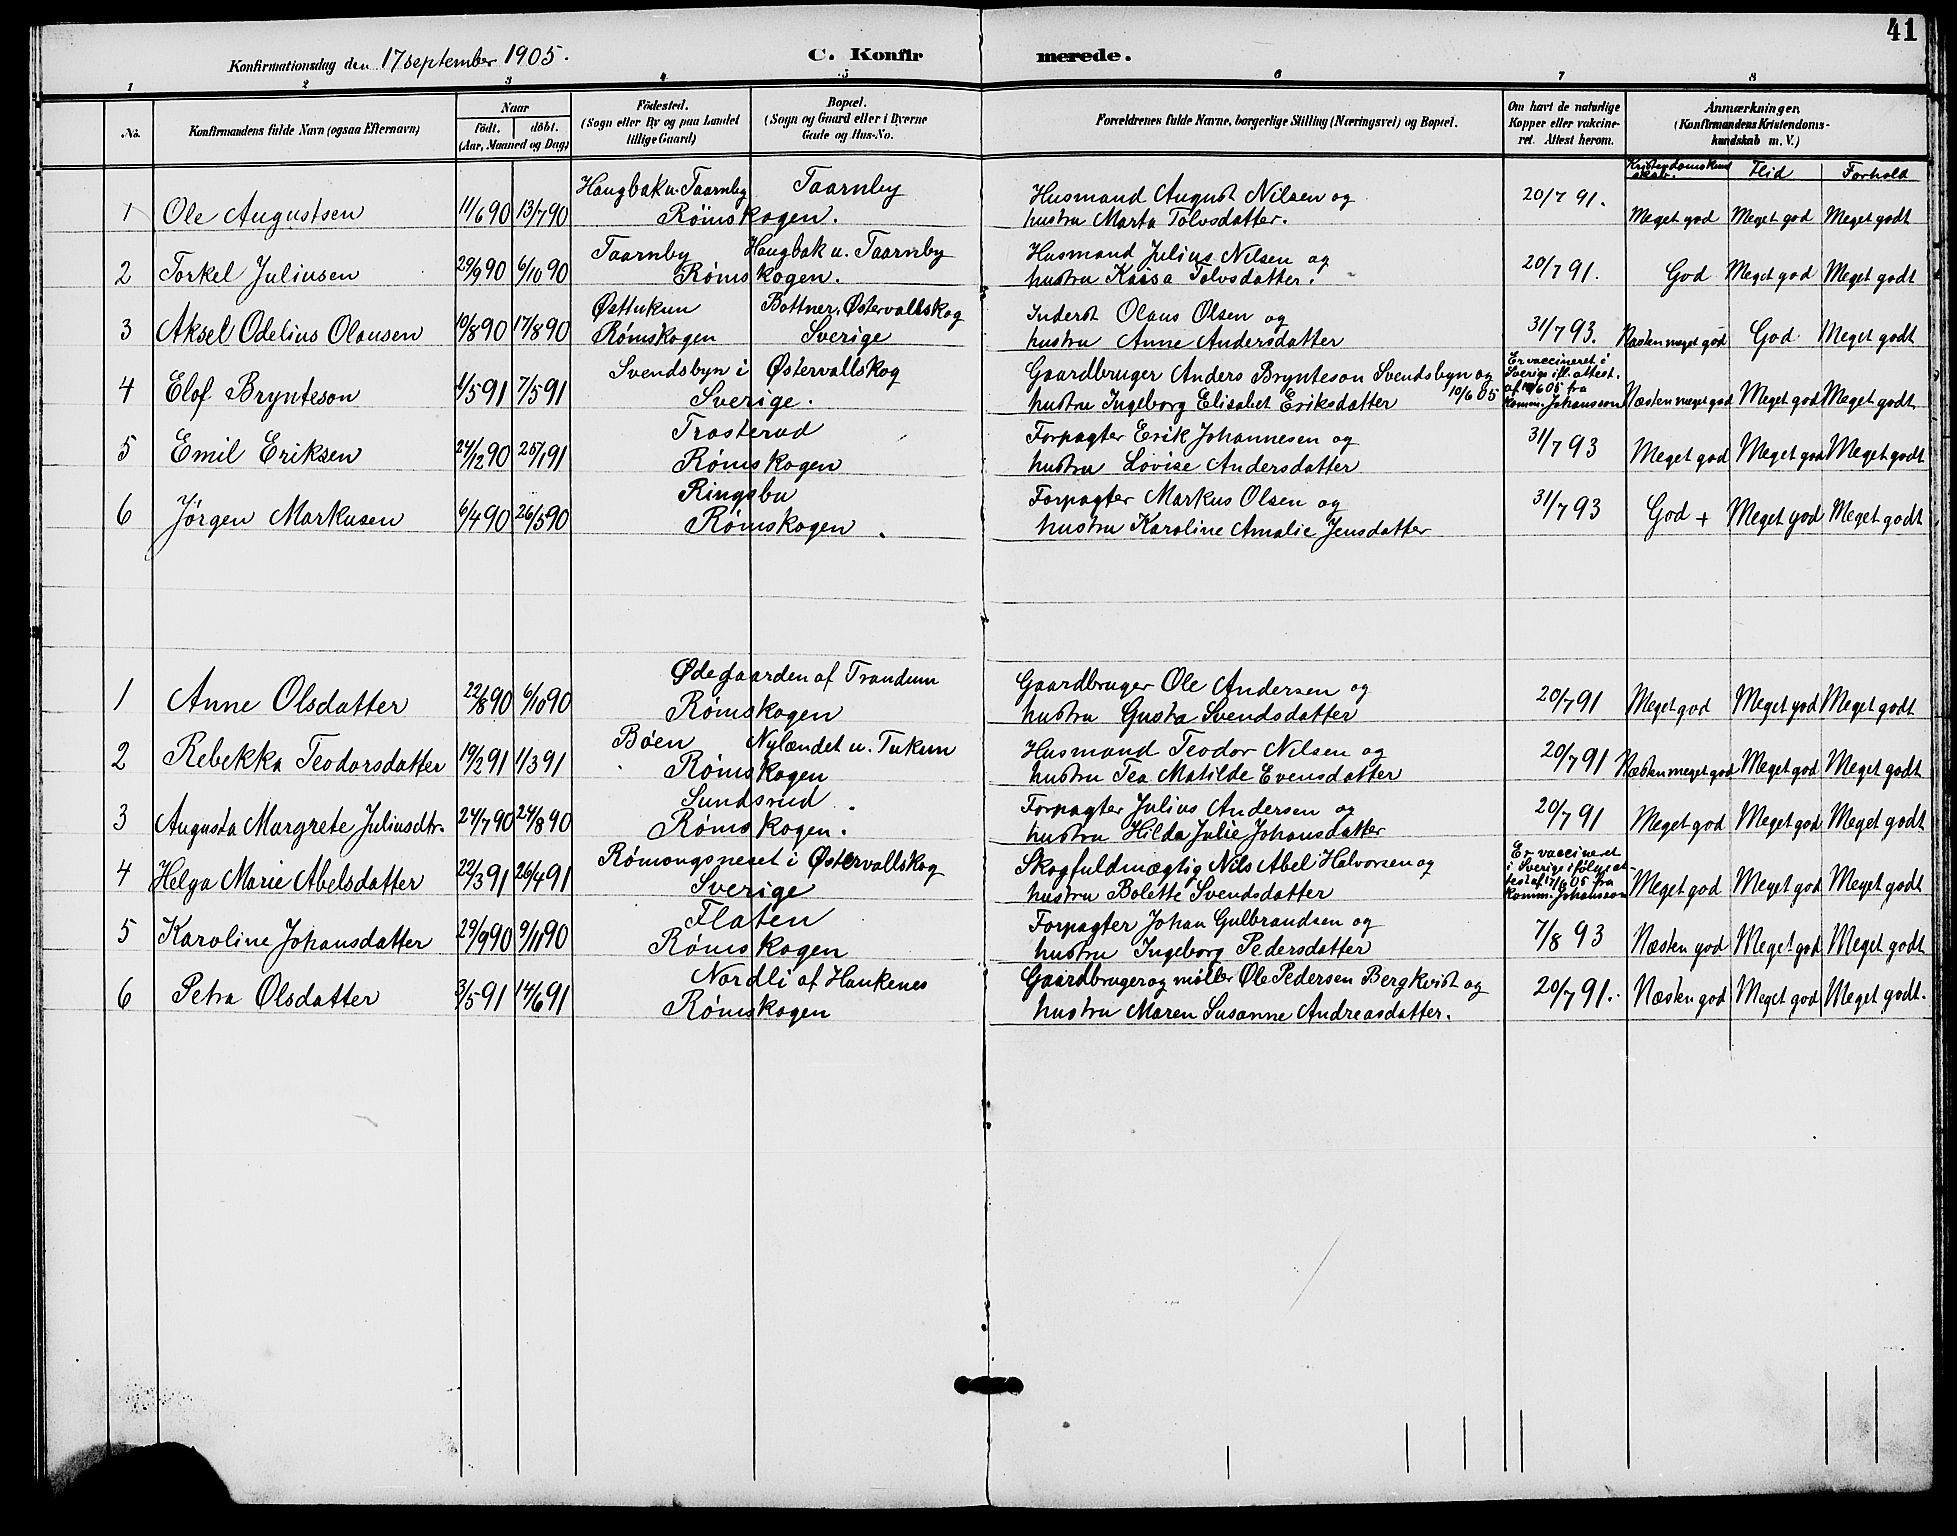 41
Konfirmationsdag den 17 september 1905.
C. Konfirmerede.
1 2 3 4 5 6 7 8
No.
Konfirmandens fulde Navn (ogsaa Efternavn)
Naar
födt. döbt.
(Aar, Maaned og Dag)
Födested.
(Sogn eller By og paa Landet
tillige Gaard)
Bopæl.
(Sogn og Gaard eller i Byerne
Gade og Hus-No.
Forældrenes fulde Navne, borgerlige Stilling (Næringsvei) og Bopæl.
Om havt de naturlige
Kopper eller vakcine-
ret. Attest herom.
Anmærkninger,
(Konfirmandens Kristendoms-
kundskab m. V.)
Kristendomskund
skab. Flid Forhold
Haugbak u. Taarnby Taarnby Husmand August Nilsen og 20/7 91.
1 Ole Augustsen 11/6 90 13/7 90 Römskogen. hustru Marta Tolvsdatter. Meget god Meget god Meget godt
Taarnby Haugbak u. Taarnby Husmand Julius Nilsen og
2 Torkel Juliusen 29/9 90 6/10 90 Rømskogen. hustru Kaisa Tolvsdatter. 20/7 91. God Meget god Meget godt
Østtukun Bottner, Østervallskog Inderst Olaus Olsen og
3 Aksel Odelius Olausen 10/8 90 17/8 90 Rømskogen Sverige hustru Anne Andersdatter 31/7 93. Næsten meget god God Meget godt
Svendsbyn i Østervallskog Gaardbruger Anders Brynteson Svendsbyn og
Er vaccineret i
Sverige ifl. attest.
af 10/6 05 fra
komm. Johansson
4 Elof Brynteson 1/5 91 7/5 91 Sverige. hustru Ingeborg Elisabet Eriksdatter 10/6 05 Næsten meget god Meget god Meget godt
Trosterud Forpagter Erik Johannesen og
5 Emil Eriksen 24/12 90 25/1 91 Rømskogen hustru Lovise Andersdatter 31/7 93 Meget god Meget god Meget godt
Ringsbu Forpagter Markus Olsen og
6 Jørgen Markusen 6/4 90 26/5 90 Rømskogen. hustru Karoline Amalie Jensdatter 31/7 93 God + Meget god Meget godt
Ødegaarden af Trandem Gaardbruger Ole Andersen og
1 Anne Olsdatter 22/8 90 6/10 90 Rømskogen hustru Gusta Svendsdatter 20/7 91 Meget god Meget god Meget godt
Böen Nylændet u. Tukun Husmand Teodor Nilsen og
2 Rebekka Teodorsdatter 19/2 91 1/3 91 Rømskogen hustru Tea Matilde Evensdatter 20/7 91 Næsten meget god Meget god Meget godt
Sundsrud Forpagter Julius Andersen og
3 Augusta Margrete Juliusdtr. 24/7 90 24/8 90 Rømskogen. hustru Hilda Julie Johansdatter 20/7 91 Meget god Meget god Meget godt
Römongsneset i Østervallskog Skogfuldmægtig Nils Abel Halvorsen og
Er vaccineret
i Sverige ifølge at-
test af 17/6 05 fra
komm. Johansson
4 Helga Marie Abelsdatter 22/3 91 26/4 91 Sverige hustru Bolette Svendsdatter Meget god Meget god Meget godt
Flaten Forpagter Johan Gulbrandsen og
5 Karoline Johansdatter 29/9 90 9/11 90 Rømskogen hustru Ingeborg Pedersdatter 7/8 93 Næsten god Meget god Meget godt
Nordli af Haukenes Gaardbruger og møller Ole Pedersen Bergkvist og
6 Petra Olsdatter 3/5 91 14/6 91 Rømskogen hustru Maren Susanne Andreasdatter. 20/7 91. Næsten god Meget god Meget godt.